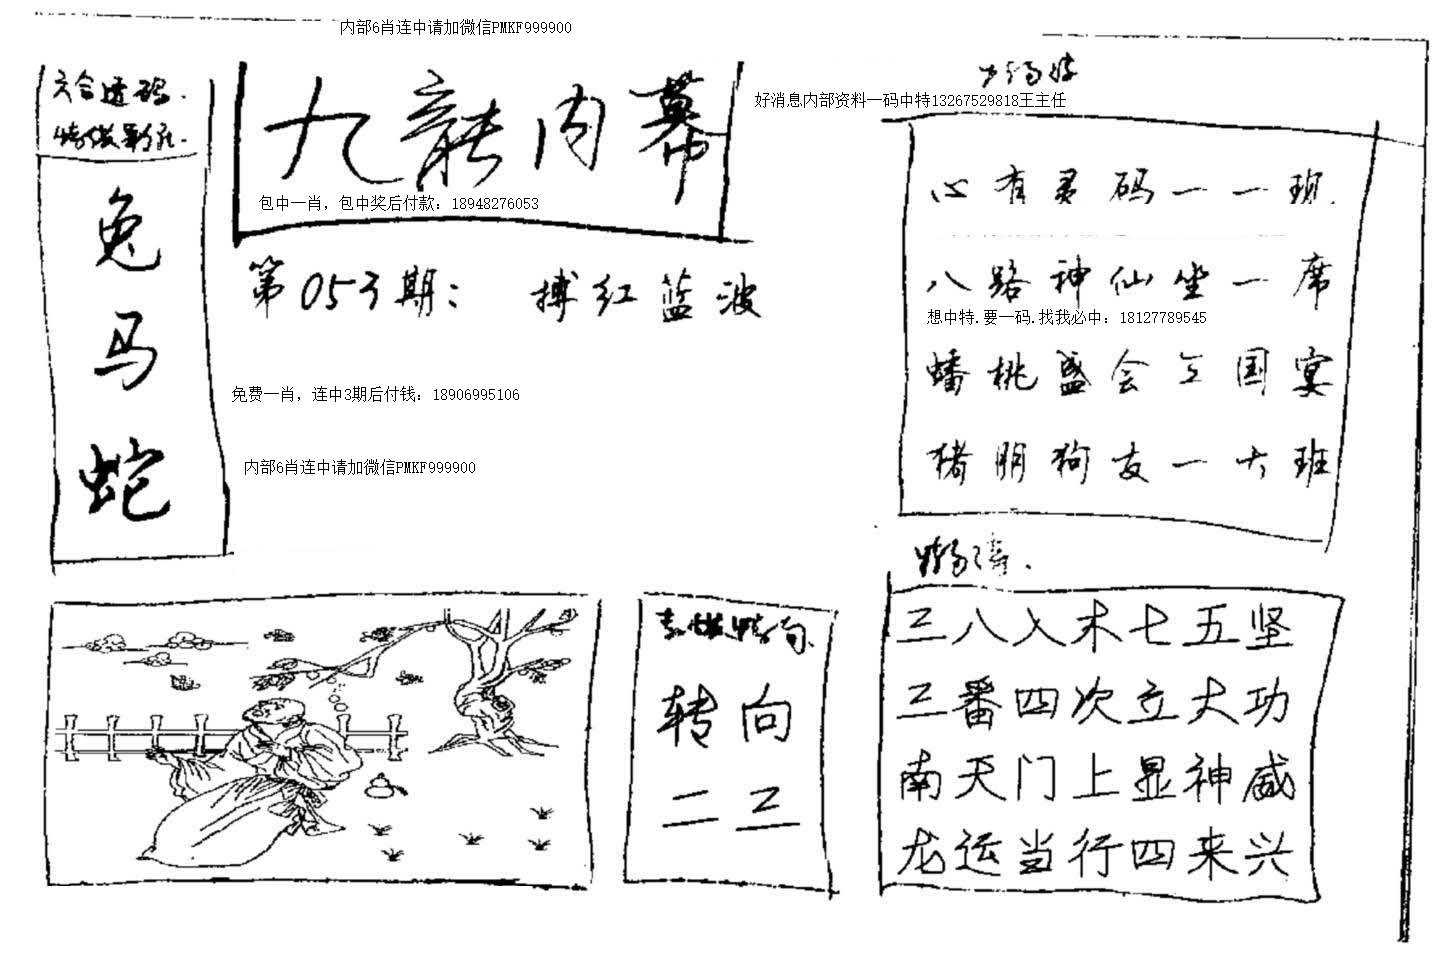 内部6肖连中请加微信PMKF999900
六合透码.
特供彩民.
兔
马
蛇
九龙内幕
包中一肖，包中奖后付款：18948276053
第053期：搏红蓝波
免费一肖，连中3期后付钱：18906995106
内部6肖连中请加微信PMKF999900
好消息内部资料一码中特13267529818王主任
心有灵码一一现.
八路神仙坐一席
想中特.要一码.找我必中：18127789545
蟠桃盛会三国宴
猪朋狗友一大班
转向
二三
三八入木七五坚
三番四次立大功
南天门上显神威
龙运当行四来兴